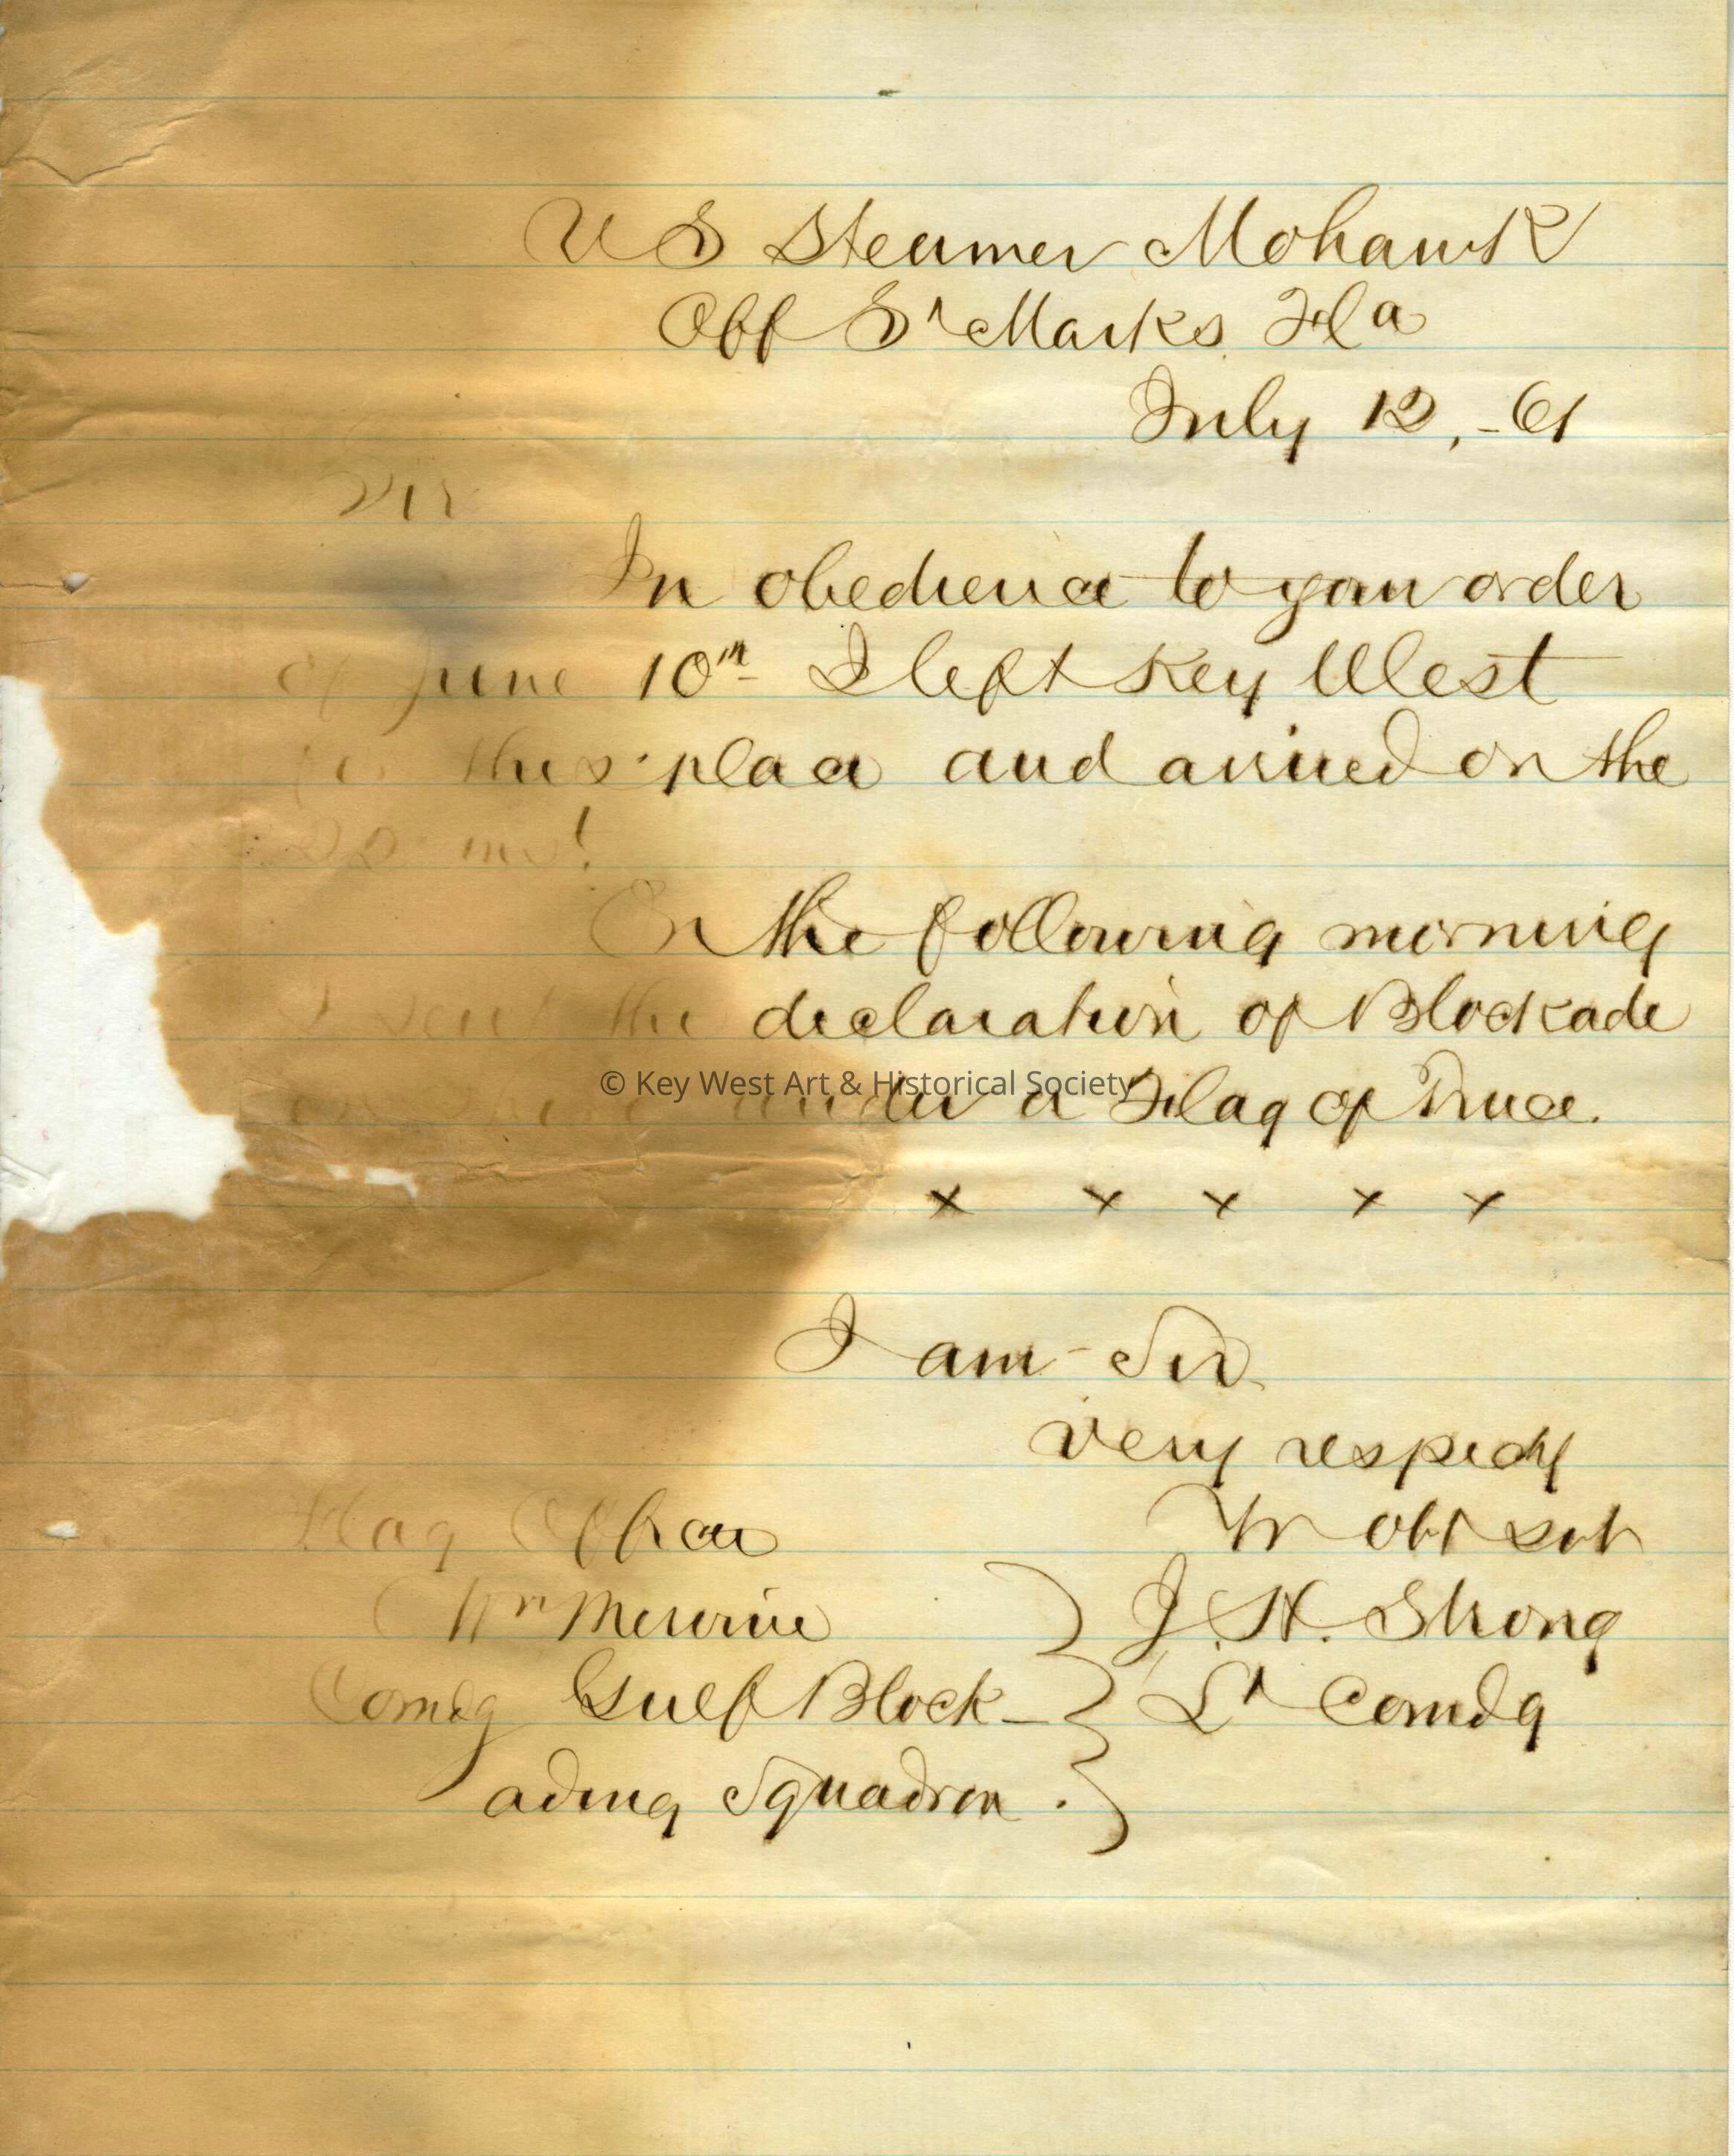 U S Steamer Mohawk
Off St Marks Fla
July 12, -61
Sir
In obedience to your order
of June 10th I left Key West
for this place and arrived on the
22 inst
On the following morning
I sent the declaration of Blockade
under a Flag of Truce.
x x x x x
I am Sir
very respecty
Yr obt svt
Flag Officer
Wm Mervine
J. H. Strong
Comdg Gulf Block-
Lt Comdg
ading Squadron.
© Key West Art & Historical Society